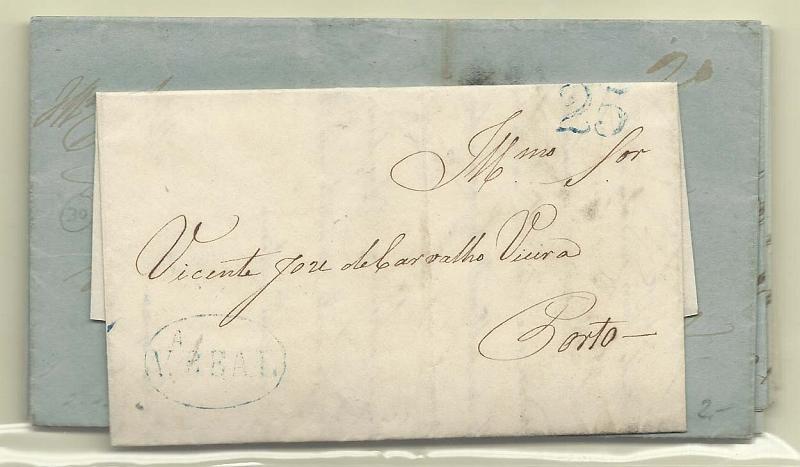 25
Illmo Sor
Vicente Joze de Carvalho Vieira
Porto
A
30
2.-